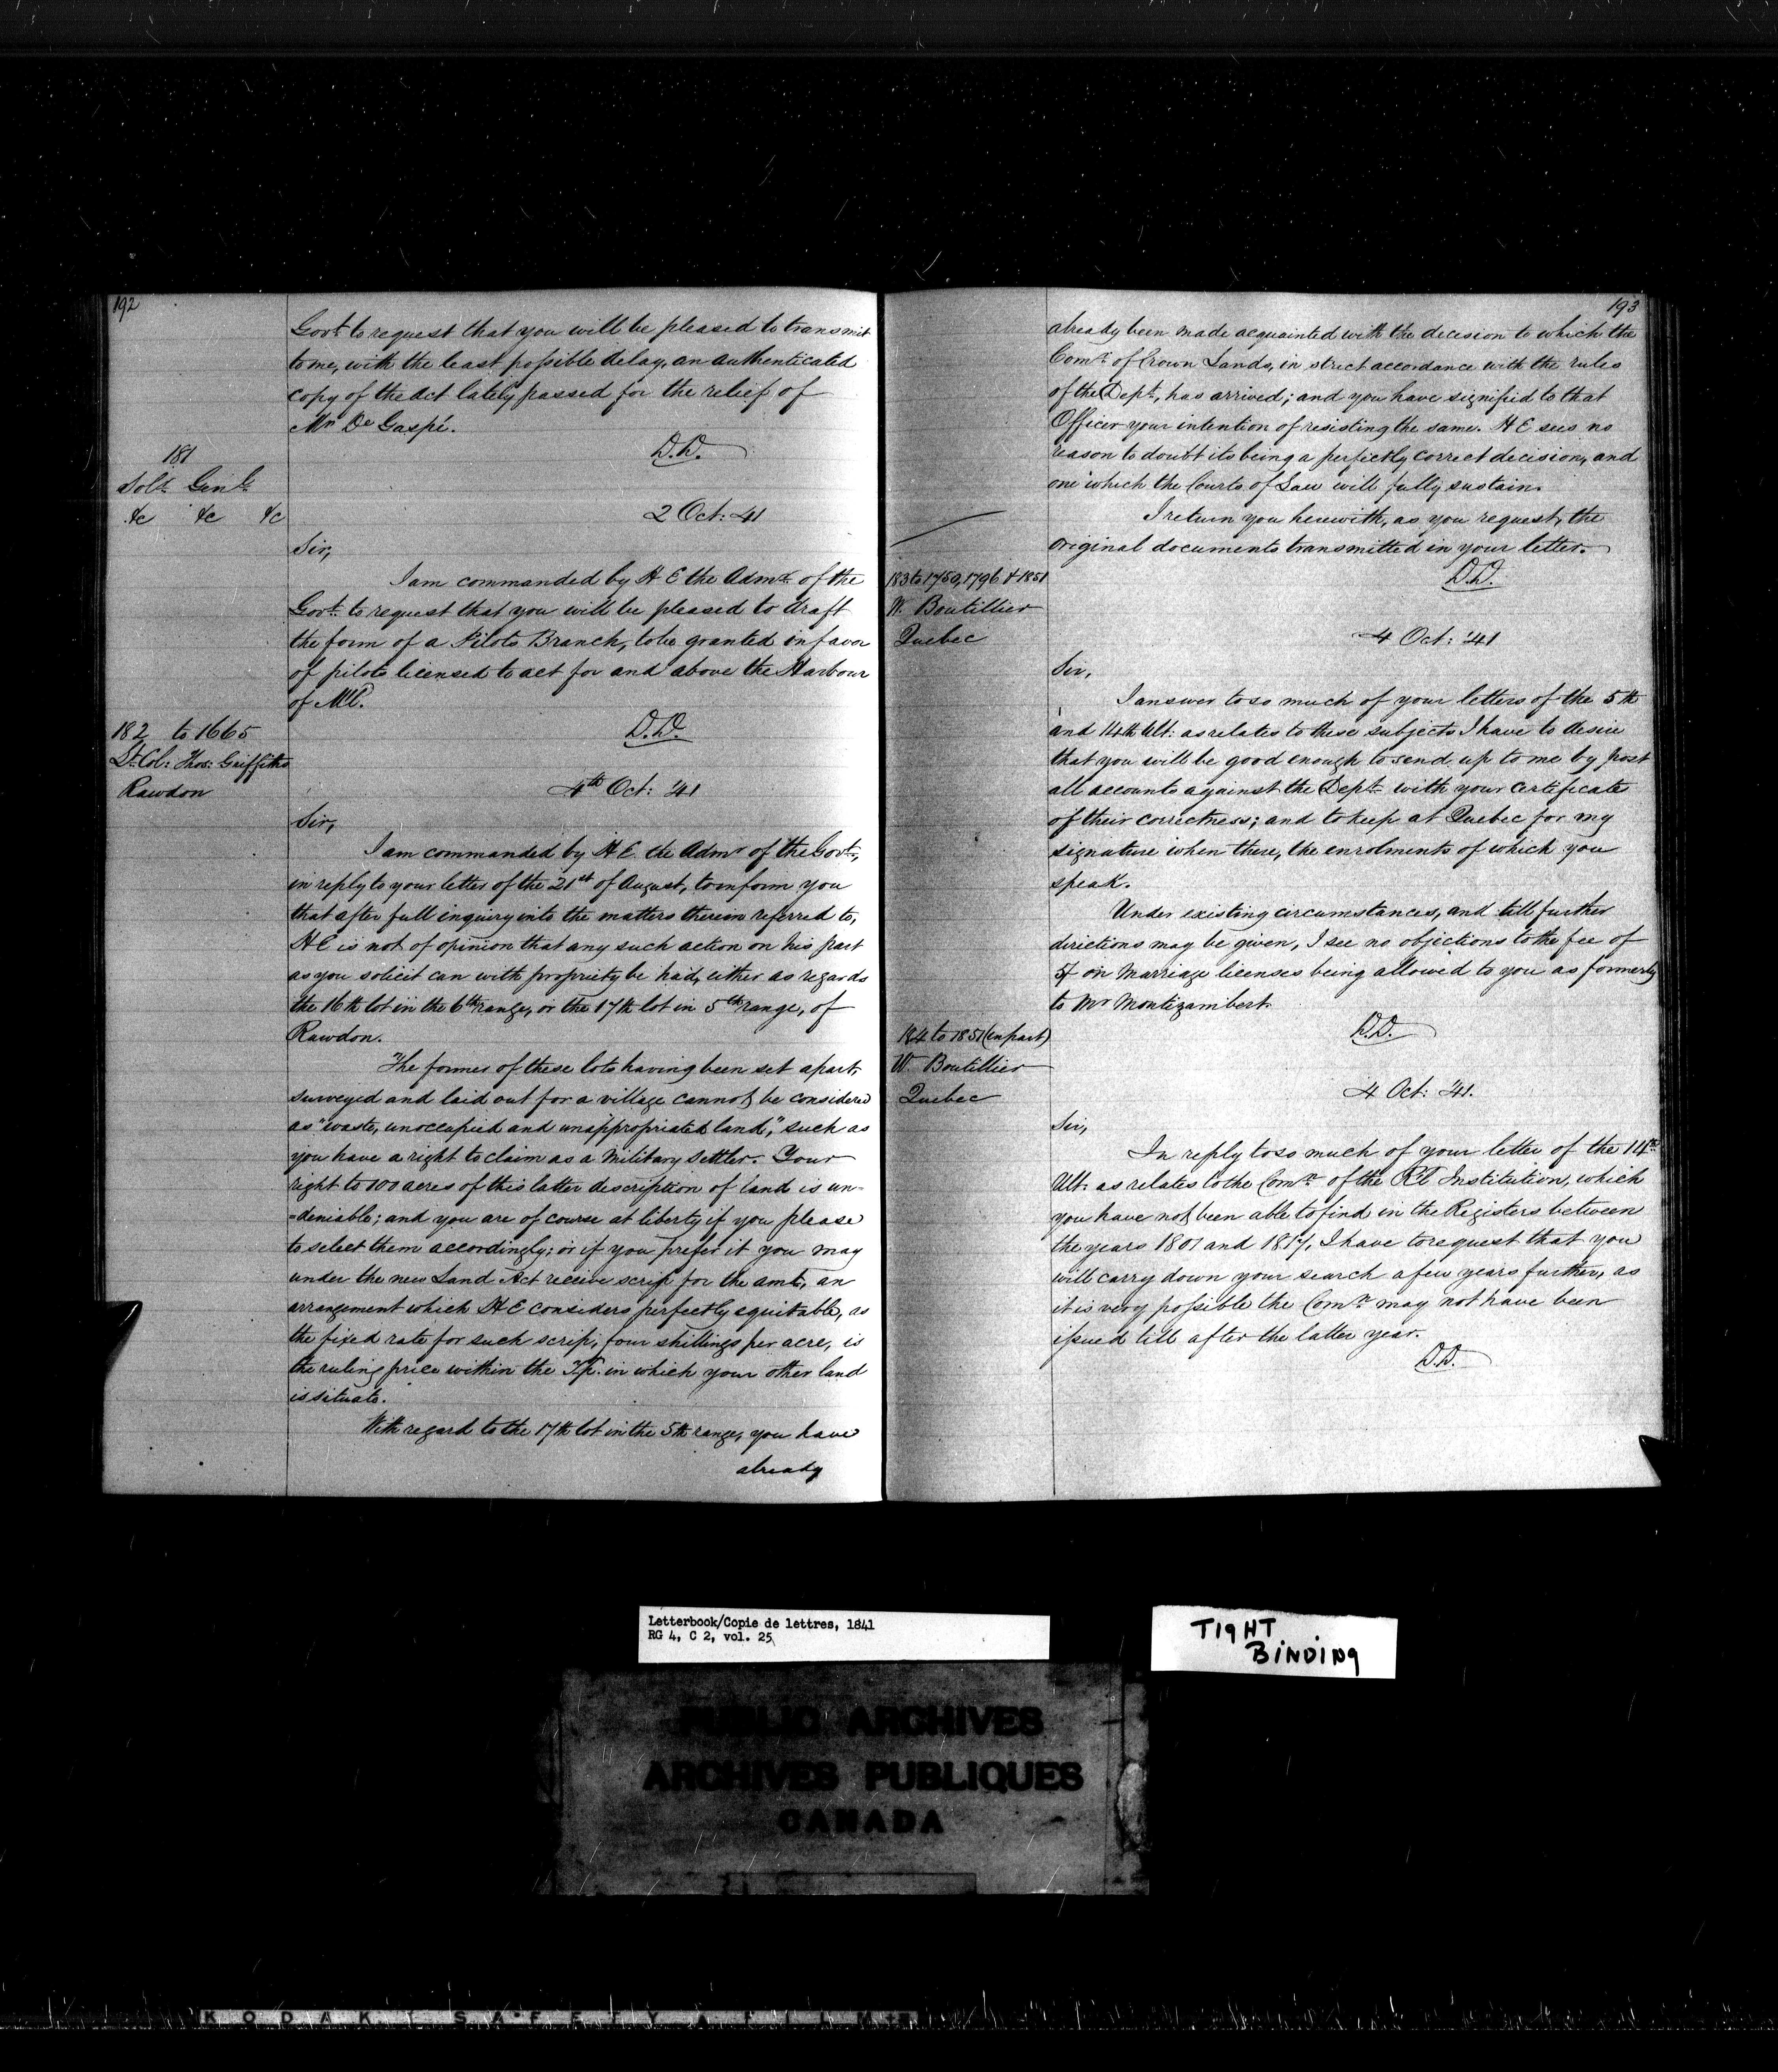 192
Govt. to request that you will be pleased to transmit
to me, with the least possible delay, an authenticated
copy of the Act lately passed for the relief of
Mr De Gaspé.
D.D.
181
Solr. Genl.
&c &c &c
2 Oct: 41
Sir,
I am commanded by H E the Admr. of the
Govt. to request that you will be pleased to draft
the form of a Pilots Branch, to be granted in favor
of pilots licensed to act for and above the Harbour
of Ml.
D.D.
182 to 1665
Lt. Col: Thos: Griffiths
Rawdon
4th Oct: '41
Sir,
I am commanded by H E the Admr of the Govt.,
in reply to your letter of the 21st of August, to inform you
that after full inquiry into the matters therein referred to,
H E is not of opinion that any such action on his part
as you solicit can with propriety be had, either as regards
the 16th lot in the 6th range, or the 17th lot in 5th range, of
Rawdon.
The former of these lots having been set apart,
surveyed and laid out for a village cannot be considered
as "waste, unoccupied and unappropriated land," such as
you have a right to claim as a Military Settler. Your
right to 100 acres of this latter description of land is un-
=deniable; and you are of course at liberty if you please
to select them accordingly; or if you prefer it you may
under the new Land Act receive scrip for the amt, an
arrangement which H E considers perfectly equitable, as
the fixed rate for such scrip, four shillings per acre, is
the ruling price within the Tp. in which your other land
is situate.
With regard to the 17th lot in the 5th range, you have
already
193
already been made acquainted with the decision to which the
Comr. of Crown Lands, in strict accordance with the rules
of the Dept., has arrived; and you have signified to that
Officer your intention of resisting the same. H E sees no
reason to doubt its being a perfectly correct decision, and
one which the Courts of Law will fully sustain.
I return you herewith, as you request, the
original documents transmitted in your letter.
D.D.
183 to 1750, 1796 & 1851
W. Boutillier
Quebec
4 Oct: '41
Sir,
I answer to so much of your letters of the 5th
and 14th Ult: as relates to these subjects I have to desire
that you will be good enough to send up to me by post
all accounts against the Dept. with your certificate
of their correctness; and to keep at Quebec for my
signature when there, the enrolments of which you
speak.
Under existing circumstances, and till further
directions may be given, I see no objections to the fee of
5/ on Marriage licenses being allowed to you as formerly
to Mr Montizambert.
D.D.
184 to 1851 (in part)
W. Boutillier
Quebec
4 Oct: '41.
Sir,
In reply to so much of your letter of the 14th
Ult. as relates to the Comn. of the Rl Institution, which
you have not been able to find in the Registers between
the years 1801 and 1817, I have to request that you
will carry down your search a few years further, as
it is very possible the Comn. may not have been
issued till after the latter year.
D.D.
Letterbook/Copie de lettres, 1841
RG 4, C 2, vol. 25
TIGHT
BINDING
PUBLIC ARCHIVES
ARCHIVES PUBLIQUES
CANADA
KODAK SAFETY FILM